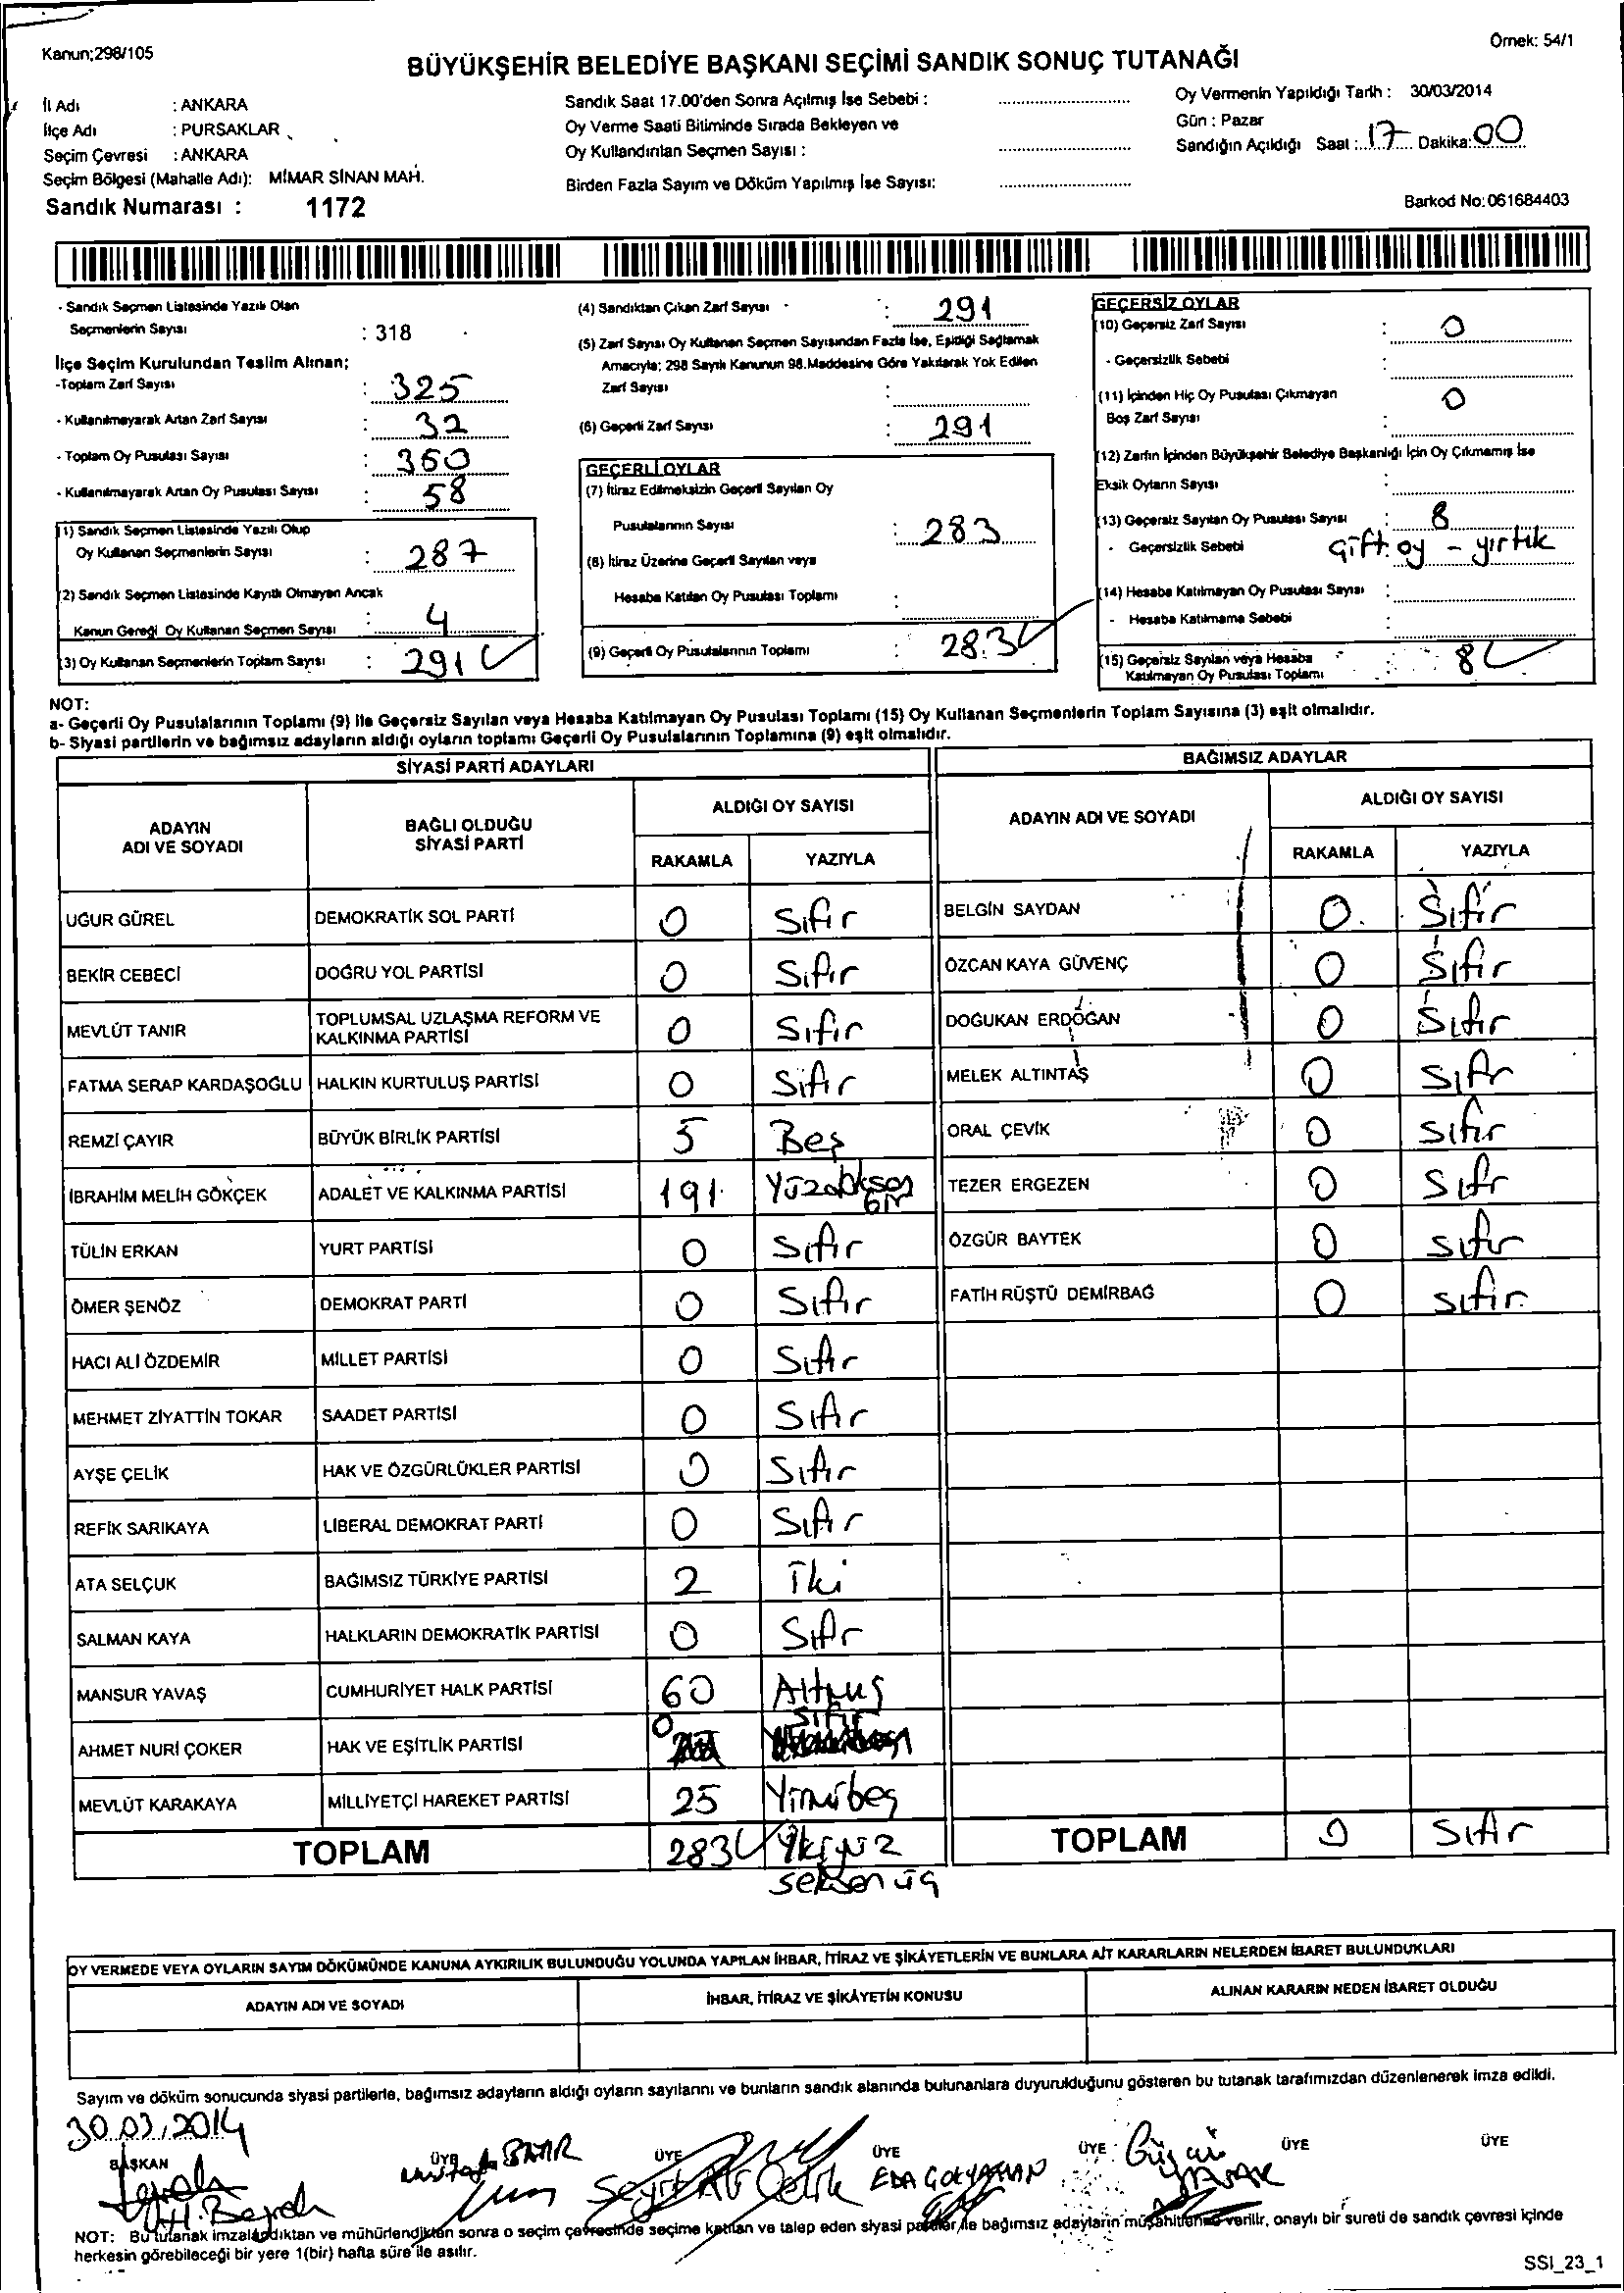 Kanun;298/105
Örnek: 54/1
BÜYÜKŞEHİR BELEDİYE BAŞKANI SEÇİMİ SANDIK SONUÇ TUTANAĞI
İl Adı : ANKARA
İlçe Adı : PURSAKLAR
Seçim Çevresi : ANKARA
Seçim Bölgesi (Mahalle Adı): MİMAR SİNAN MAH.
Sandık Numarası : 1172
Sandık Saat 17.00'den Sonra Açılmış İse Sebebi :
Oy Verme Saati Bitiminde Sırada Bekleyen ve
Oy Kullandırılan Seçmen Sayısı :
Birden Fazla Sayım ve Döküm Yapılmış İse Sayısı:
Oy Vermenin Yapıldığı Tarih : 30/03/2014
Gün : Pazar
Sandığın Açıldığı Saat : 17 Dakika: 00
Barkod No:061684403
- Sandık Seçmen Listesinde Yazılı Olan
Seçmenlerin Sayısı : 318
İlçe Seçim Kurulundan Teslim Alınan;
-Toplam Zarf Sayısı : 325
- Kullanılmayarak Artan Zarf Sayısı : 32
- Toplam Oy Pusulası Sayısı : 350
- Kullanılmayarak Artan Oy Pusulası Sayısı : 58
(1) Sandık Seçmen Listesinde Yazılı Olup
Oy Kullanan Seçmenlerin Sayısı : 287
(2) Sandık Seçmen Listesinde Kayıtlı Olmayan Ancak
Kanun Gereği Oy Kullanan Seçmen Sayısı : 4
(3) Oy Kullanan Seçmenlerin Toplam Sayısı : 291
(4) Sandıktan Çıkan Zarf Sayısı : 291
(5) Zarf Sayısı Oy Kullanan Seçmen Sayısından Fazla İse, Eşitliği Sağlamak
Amacıyla; 298 Sayılı Kanunun 98.Maddesine Göre Yakılarak Yok Edilen
Zarf Sayısı :
(6) Geçerli Zarf Sayısı : 291
GEÇERLİ OYLAR
(7) İtiraz Edilmeksizin Geçerli Sayılan Oy
Pusulalarının Sayısı : 283
(8) İtiraz Üzerine Geçerli Sayılan veya
Hesaba Katılan Oy Pusulası Toplamı :
(9) Geçerli Oy Pusulalarının Toplamı : 283
GEÇERSİZ OYLAR
(10) Geçersiz Zarf Sayısı : 0
- Geçersizlik Sebebi :
(11) İçinden Hiç Oy Pusulası Çıkmayan
Boş Zarf Sayısı : 0
(12) Zarfın İçinden Büyükşehir Belediye Başkanlığı İçin Oy Çıkmamış İse
Eksik Oyların Sayısı :
(13) Geçersiz Sayılan Oy Pusulası Sayısı : 8
- Geçersizlik Sebebi çift oy - yırtık
(14) Hesaba Katılmayan Oy Pusulası Sayısı :
- Hesaba Katılmama Sebebi :
(15) Geçersiz Sayılan veya Hesaba
Katılmayan Oy Pusulası Toplamı : 8
NOT:
a- Geçerli Oy Pusulalarının Toplamı (9) ile Geçersiz Sayılan veya Hesaba Katılmayan Oy Pusulası Toplamı (15) Oy Kullanan Seçmenlerin Toplam Sayısına (3) eşit olmalıdır.
b- Siyasi partilerin ve bağımsız adayların aldığı oyların toplamı Geçerli Oy Pusulalarının Toplamına (9) eşit olmalıdır.
SİYASİ PARTİ ADAYLARI
ADAYIN ADI VE SOYADI
BAĞLI OLDUĞU SİYASİ PARTİ
ALDIĞI OY SAYISI
RAKAMLA YAZIYLA
UĞUR GÜREL DEMOKRATİK SOL PARTİ 0 Sıfır
BEKİR CEBECİ DOĞRU YOL PARTİSİ 0 Sıfır
MEVLÜT TANIR TOPLUMSAL UZLAŞMA REFORM VE KALKINMA PARTİSİ 0 Sıfır
FATMA SERAP KARDAŞOĞLU HALKIN KURTULUŞ PARTİSİ 0 Sıfır
REMZİ ÇAYIR BÜYÜK BİRLİK PARTİSİ 5 Beş
İBRAHİM MELİH GÖKÇEK ADALET VE KALKINMA PARTİSİ 191
TÜLİN ERKAN YURT PARTİSİ 0 Sıfır
ÖMER ŞENÖZ DEMOKRAT PARTİ 0 Sıfır
HACI ALİ ÖZDEMİR MİLLET PARTİSİ 0 Sıfır
MEHMET ZİYATTİN TOKAR SAADET PARTİSİ 0 Sıfır
AYŞE ÇELİK HAK VE ÖZGÜRLÜKLER PARTİSİ 0 Sıfır
REFİK SARIKAYA LİBERAL DEMOKRAT PARTİ 0 Sıfır
ATA SELÇUK BAĞIMSIZ TÜRKİYE PARTİSİ 2 İki
SALMAN KAYA HALKLARIN DEMOKRATİK PARTİSİ 0 Sıfır
MANSUR YAVAŞ CUMHURİYET HALK PARTİSİ 60 Altmış
AHMET NURİ ÇOKER HAK VE EŞİTLİK PARTİSİ 0 Sıfır
MEVLÜT KARAKAYA MİLLİYETÇİ HAREKET PARTİSİ 25 Yirmibeş
TOPLAM 283 İkiyüz
seksen üç
BAĞIMSIZ ADAYLAR
ADAYIN ADI VE SOYADI
ALDIĞI OY SAYISI
RAKAMLA YAZIYLA
BELGİN SAYDAN 0 Sıfır
ÖZCAN KAYA GÜVENÇ 0 Sıfır
DOĞUKAN ERDOĞAN 0 Sıfır
MELEK ALTINTAŞ 0 Sıfır
ORAL ÇEVİK 0 Sıfır
TEZER ERGEZEN 0 Sıfır
ÖZGÜR BAYTEK 0 sıfır
FATİH RÜŞTÜ DEMİRBAĞ 0 sıfır
TOPLAM 0 Sıfır
OY VERMEDE VEYA OYLARIN SAYIM DÖKÜMÜNDE KANUNA AYKIRILIK BULUNDUĞU YOLUNDA YAPILAN İHBAR, İTİRAZ VE ŞİKÂYETLERİN VE BUNLARA AİT KARARLARIN NELERDEN İBARET BULUNDUKLARI
ADAYIN ADI VE SOYADI
İHBAR, İTİRAZ VE ŞİKÂYETİN KONUSU
ALINAN KARARIN NEDEN İBARET OLDUĞU
Sayım ve döküm sonucunda siyasi partilerle, bağımsız adayların aldığı oyların sayılarını ve bunların sandık alanında bulunanlara duyurulduğunu gösteren bu tutanak tarafımızdan düzenlenerek imza edildi.
30.03.2014
BAŞKAN ÜYE ÜYE ÜYE ÜYE ÜYE ÜYE
NOT: Bu tutanak imzalandıktan ve mühürlendikten sonra o seçim çevresinde seçime katılan ve talep eden siyasi partiler ile bağımsız adayların müşahitlerine verilir, onaylı bir sureti de sandık çevresi içinde
herkesin görebileceği bir yere 1(bir) hafta süre ile asılır.
SSI_23_1